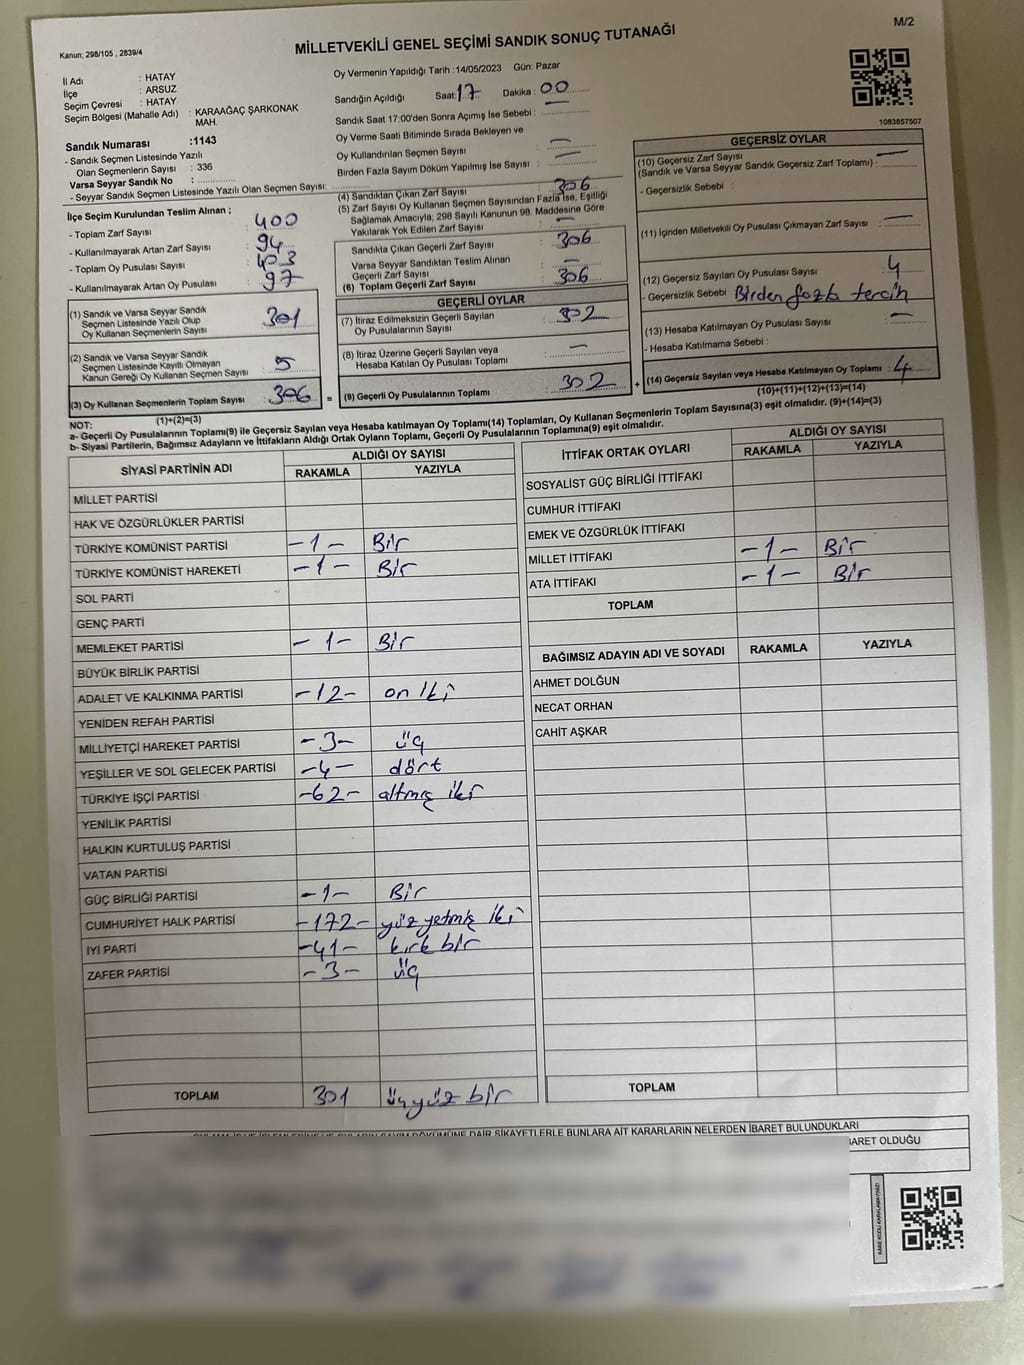 Kanun; 298/105 , 2839/4
MİLLETVEKİLİ GENEL SEÇİMİ SANDIK SONUÇ TUTANAĞI
M/2
İl Adı : HATAY
İlçe : ARSUZ
Seçim Çevresi : HATAY
Seçim Bölgesi (Mahalle Adı) : KARAAĞAÇ ŞARKONAK
MAH.
Sandık Numarası :1143
- Sandık Seçmen Listesinde Yazılı
Olan Seçmenlerin Sayısı : 336
Varsa Seyyar Sandık No :
- Seyyar Sandık Seçmen Listesinde Yazılı Olan Seçmen Sayısı:
Oy Vermenin Yapıldığı Tarih :14/05/2023 Gün: Pazar
Sandığın Açıldığı Saat:17 Dakika : 00
Sandık Saat 17:00'den Sonra Açımış İse Sebebi : —
Oy Verme Saati Bitiminde Sırada Bekleyen ve
Oy Kullandırılan Seçmen Sayısı : —
Birden Fazla Sayım Döküm Yapılmış İse Sayısı : —
1083857507
İlçe Seçim Kurulundan Teslim Alınan ;
- Toplam Zarf Sayısı : 400
- Kullanılmayarak Artan Zarf Sayısı : 94
- Toplam Oy Pusulası Sayısı : 403
- Kullanılmayarak Artan Oy Pusulası : 97
(1) Sandık ve Varsa Seyyar Sandık
Seçmen Listesinde Yazılı Olup
Oy Kullanan Seçmenlerin Sayısı : 301
(2) Sandık ve Varsa Seyyar Sandık
Seçmen Listesinde Kayıtlı Olmayan
Kanun Gereği Oy Kullanan Seçmen Sayısı : 5
(3) Oy Kullanan Seçmenlerin Toplam Sayısı : 306
(1)+(2)=(3)
(4) Sandıktan Çıkan Zarf Sayısı : 306
(5) Zarf Sayısı Oy Kullanan Seçmen Sayısından Fazla İse, Eşitliği
Sağlamak Amacıyla, 298 Sayılı Kanunun 98. Maddesine Göre
Yakılarak Yok Edilen Zarf Sayısı : —
Sandıkta Çıkan Geçerli Zarf Sayısı : 306
Varsa Seyyar Sandıktan Teslim Alınan
Geçerli Zarf Sayısı : —
(6) Toplam Geçerli Zarf Sayısı : 306
GEÇERLİ OYLAR
(7) İtiraz Edilmeksizin Geçerli Sayılan
Oy Pusulalarının Sayısı : 302
(8) İtiraz Üzerine Geçerli Sayılan veya
Hesaba Katılan Oy Pusulası Toplamı : —
= (9) Geçerli Oy Pusulalarının Toplamı : 302 +
GEÇERSİZ OYLAR
(10) Geçersiz Zarf Sayısı
(Sandık ve Varsa Seyyar Sandık Geçersiz Zarf Toplamı) : —
- Geçersizlik Sebebi :
(11) İçinden Milletvekili Oy Pusulası Çıkmayan Zarf Sayısı : —
(12) Geçersiz Sayılan Oy Pusulası Sayısı : 4
- Geçersizlik Sebebi : Birden fazla tercih
(13) Hesaba Katılmayan Oy Pusulası Sayısı : —
- Hesaba Katılmama Sebebi :
(14) Geçersiz Sayılan veya Hesaba Katılmayan Oy Toplamı : 4
(10)+(11)+(12)+(13)=(14)
NOT:
a- Geçerli Oy Pusulalarının Toplamı(9) ile Geçersiz Sayılan veya Hesaba katılmayan Oy Toplamı(14) Toplamları, Oy Kullanan Seçmenlerin Toplam Sayısına(3) eşit olmalıdır. (9)+(14)=(3)
b- Siyasi Partilerin, Bağımsız Adayların ve İttifakların Aldığı Ortak Oyların Toplamı, Geçerli Oy Pusulalarının Toplamına(9) eşit olmalıdır.
SİYASİ PARTİNİN ADI ALDIĞI OY SAYISI
RAKAMLA YAZIYLA
MİLLET PARTİSİ
HAK VE ÖZGÜRLÜKLER PARTİSİ
TÜRKİYE KOMÜNİST PARTİSİ -1- Bir
TÜRKİYE KOMÜNİST HAREKETİ -1- Bir
SOL PARTİ
GENÇ PARTİ
MEMLEKET PARTİSİ -1- Bir
BÜYÜK BİRLİK PARTİSİ
ADALET VE KALKINMA PARTİSİ -12- on iki
YENİDEN REFAH PARTİSİ
MİLLİYETÇİ HAREKET PARTİSİ -3- üç
YEŞİLLER VE SOL GELECEK PARTİSİ -4- dört
TÜRKİYE İŞÇİ PARTİSİ -62- altmış iki
YENİLİK PARTİSİ
HALKIN KURTULUŞ PARTİSİ
VATAN PARTİSİ
GÜÇ BİRLİĞİ PARTİSİ -1- Bir
CUMHURİYET HALK PARTİSİ -172- yüz yetmiş iki
İYİ PARTİ -41- kırk bir
ZAFER PARTİSİ -3- üç
TOPLAM 301 üçyüz bir
İTTİFAK ORTAK OYLARI ALDIĞI OY SAYISI
RAKAMLA YAZIYLA
SOSYALİST GÜÇ BİRLİĞİ İTTİFAKI
CUMHUR İTTİFAKI
EMEK VE ÖZGÜRLÜK İTTİFAKI
MİLLET İTTİFAKI -1- Bir
ATA İTTİFAKI -1- Bir
TOPLAM
BAĞIMSIZ ADAYIN ADI VE SOYADI RAKAMLA YAZIYLA
AHMET DOLĞUN
NECAT ORHAN
CAHİT AŞKAR
TOPLAM
DÖKÜMÜNE DAİR ŞİKAYETLERLE BUNLARA AİT KARARLARIN NELERDEN İBARET BULUNDUKLARI
BARET OLDUĞU
KARE KODU KARALAMAYINIZ!